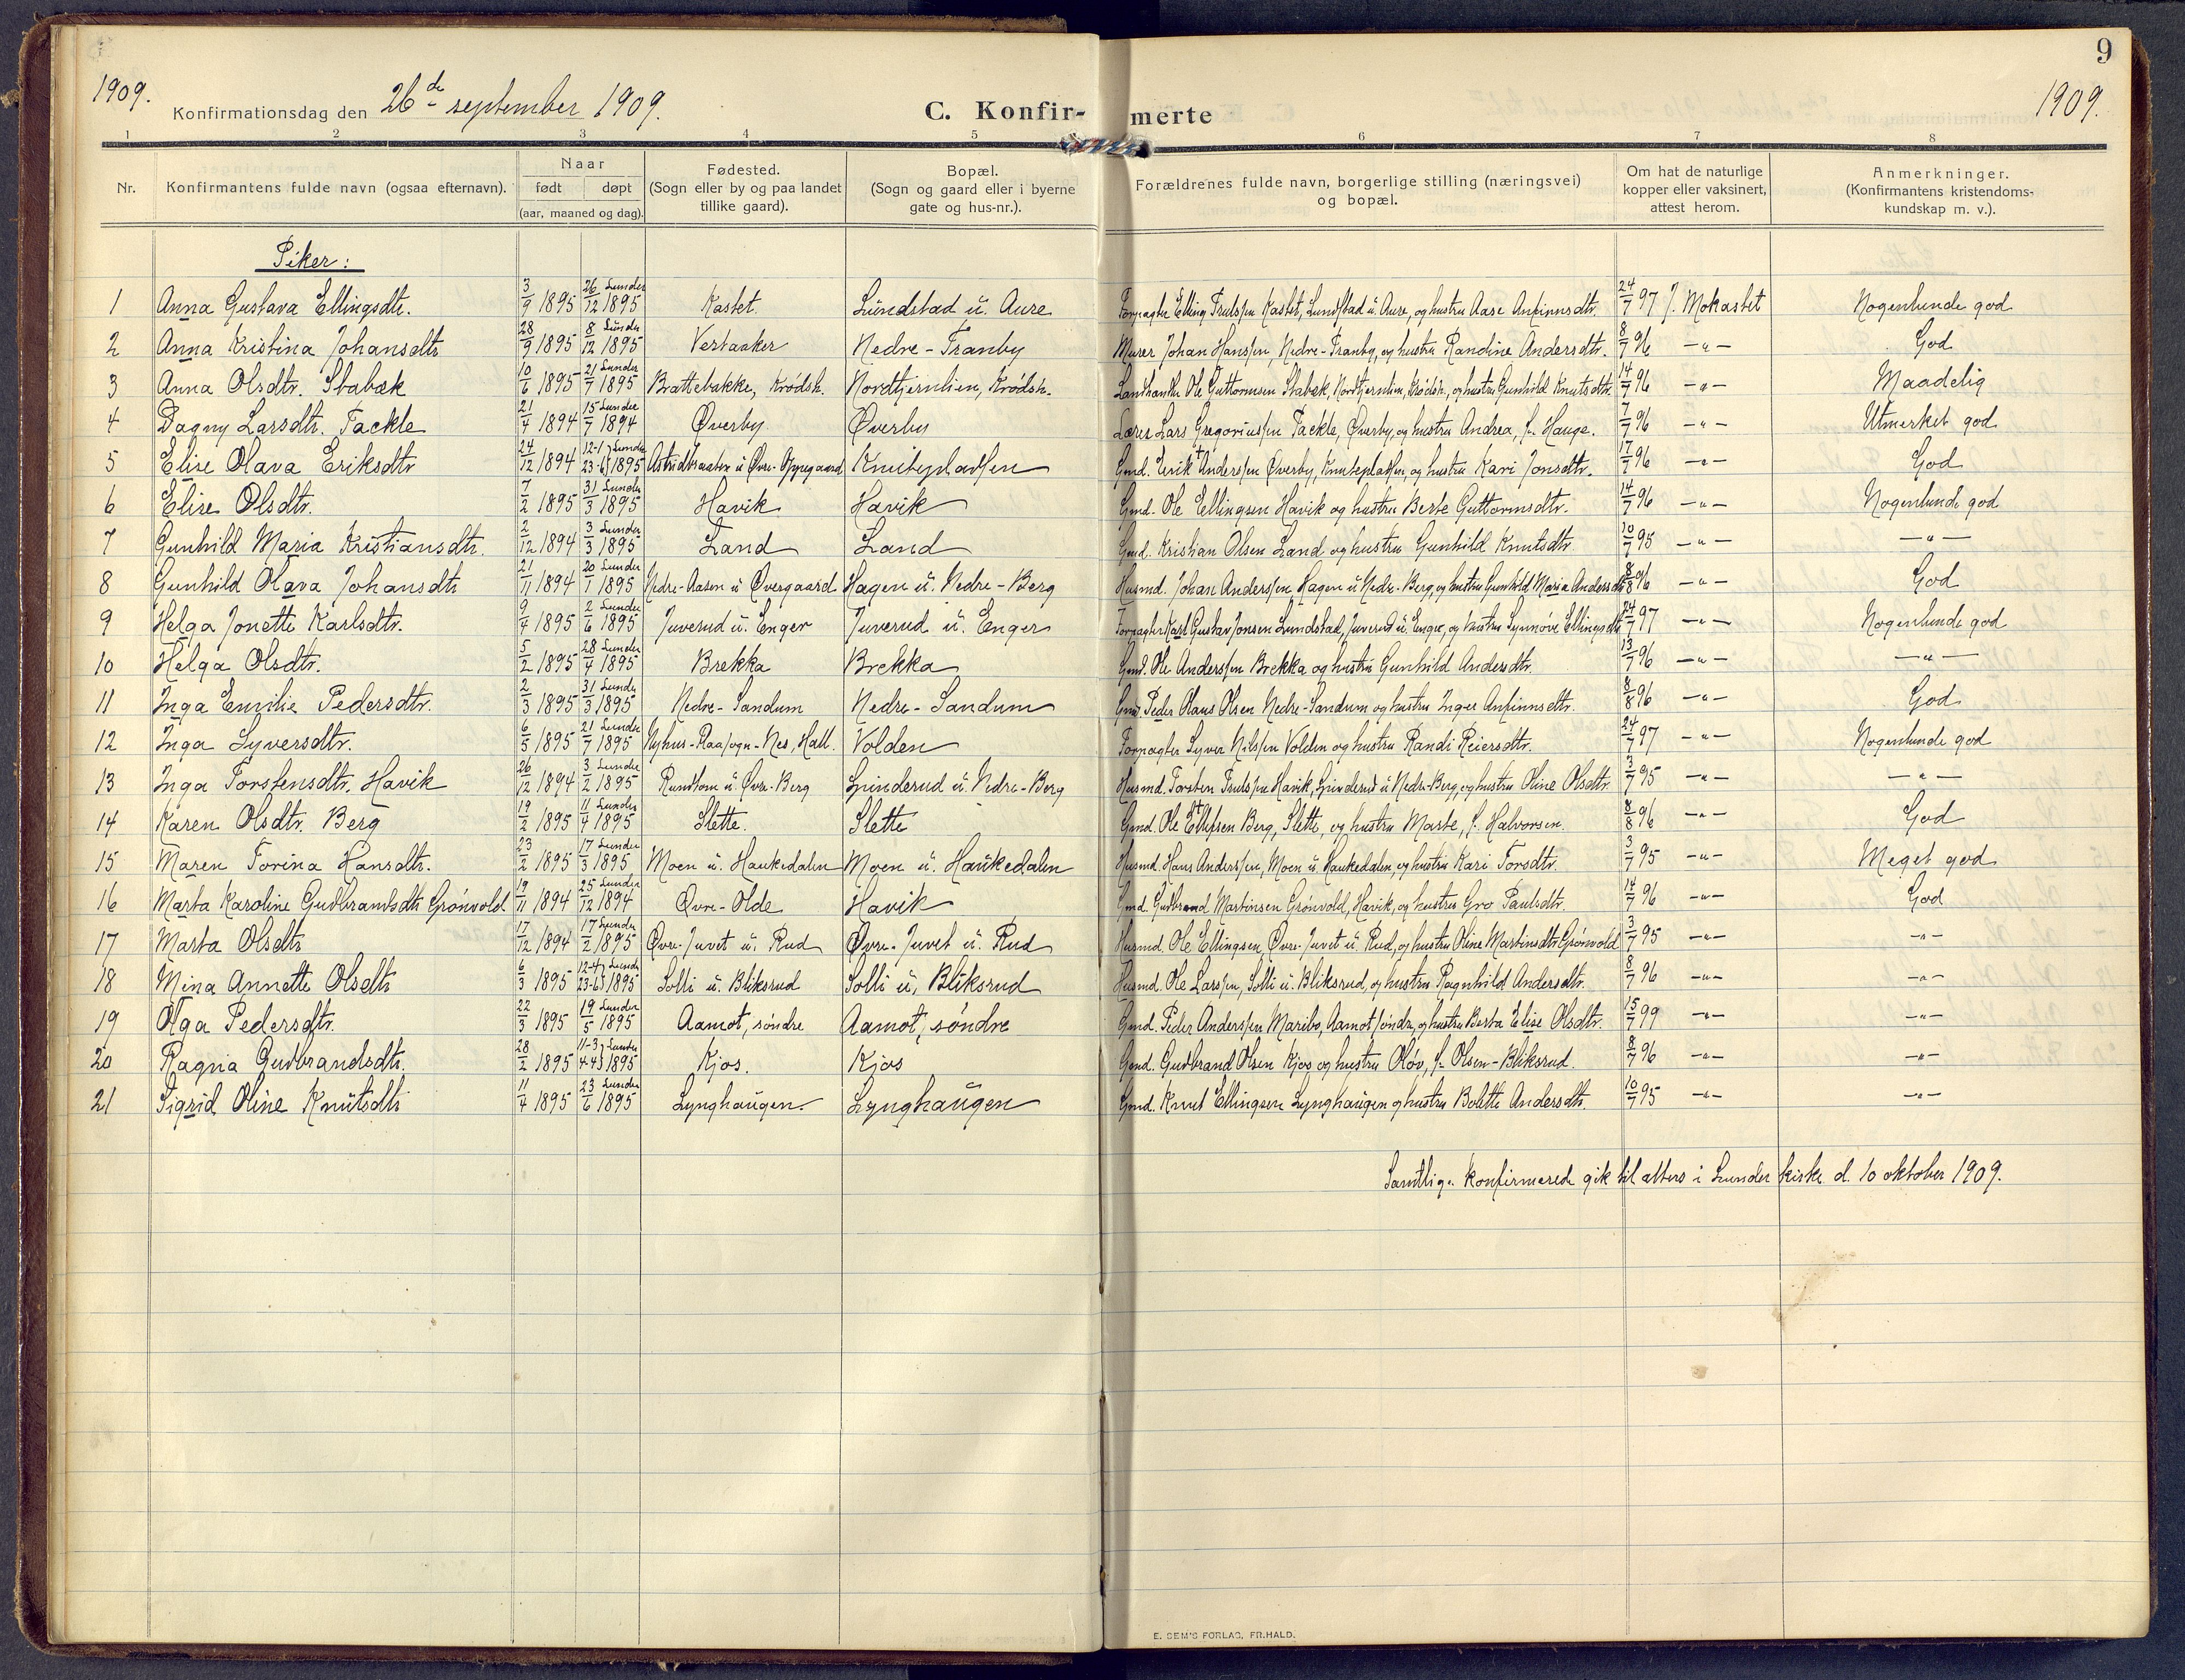 9
1909. Konfirmationsdag den 26de september 1909. C. Konfir- merte 1909.
1 2 3 4 5 6 7 8
Nr. Konfirmantens fulde navn (ogsaa efternavn). Naar født døpt (aar, maaned og dag). Fødested. (Sogn eller by og paa landet tillike gaard). Bopæl. (Sogn og gaard eller i byerne gate og hus-nr.). Forældrenes fulde navn, borgerlige stilling (næringsvei) og bopæl. Om hat de naturlige kopper eller vaksinert, attest herom. Anmerkninger. (Konfirmantens kristendoms-kundskap m. v.).
Piker:
1 Anna Gustava Ellingsdtr. 3/9 1895 26/12 Lunder 1895 Kastet. Lundstad u. Aure Forpagter Elling Trulssen Kastet, Lundstad u. Aure, og hustru Aase Anfinnsdtr. 24/7 97 J. Mokastet Nogenlunde god
2 Anna Kristina Johansdtr 28/9 1895 8/12 Lunder 1895 Vestaaker Nedre-Tranby Murer Johan Hanssen, Nedre-Tranby, og hustru Randine Andersdtr. 8/7 96 -"- God
3 Anna Olsdtr. Stabæk 10/6 1895 21/7 Lunder 1895 Brattebakke, Krødsh. Nordtjernlien, Krødsh. Landhandler Ole Guttormsen Stabæk, Nordtjernlien, Krødsh., og hustru Gunhild Knutsdtr. 14/7 96 -"- Maadelig
4 Dagny Larsdtr. Tackle 21/4 1894 15/7 Lunder 1894 Øverby Øverby Lærer Lars Gregoriussen Tackle, Øverby, og hustru Andrea, f. Hauge. 7/7 96 -"- Utmerket god
5 Elise Olava Eriksdtr 24/12 1894 12-1 23-6 Lunder 1895 u. Øvre-Oppegaard Knuteplassen Gmd. Erik Anderssen Øverby, Knuteplassen, og hustru Kari Jonsdtr. 17/7 96 -"- God
6 Elise Olsdtr. 7/2 1895 31/3 Lunder 1895 Havik Havik Gmd. Ole Ellingsen Havik og hustru Berte Guttormsdtr. 14/7 96 -"- Nogenlunde god
7 Gunhild Maria Kristiansdtr. 2/12 1894 3/3 Lunder 1895 Land Land Gmd. Kristian Olsen Land og hustru Gunhild Knutsdtr. 10/7 95 -"- -"-
8 Gunhild Olava Johansdtr 21/11 1894 20/1 Lunder 1895 Nedre-Aasen u. Øvergaard Hagen u. Nedre-Berg Husmd. Johan Anderssen, Hagen u. Nedre-Berg, og hustru Gunhild Maria Andersdtr 8/8 96 -"- God
9 Helga Jonette Karlsdtr. 9/4 1895 2/6 Lunder 1895 Juverud u. Enger Juverud u. Enger Forpagter Karl Gustav Jonsen Lundstad, Juverud u. Enger, og hustru Synnøve Ellingsdtr 24/7 97 -"- Nogenlunde god
10 Helga Olsdtr. 5/2 1895 28/4 Lunder 1895 Brekka Brekka Gmd. Ole Anderssen Brekka og hustru Gunhild Andersdtr. 13/7 96 -"- -"-
11 Inga Emilie Pedersdtr. 2/3 1895 31/3 Lunder 1895 Nedre-Sandum Nedre-Sandum Gmd. Peder Olaus Olsen Nedre-Sandum og hustru Inger Anfinnsdtr. 8/8 96 -"- God
12 Inga Syversdtr. 6/5 1895 21/7 Lunder 1895 Nyhus-Raasogn-Nes, Hall. Volden Forpagter Syver Nilssen Volden og hustru Randi Reiersdtr. 24/7 97 -"- Nogenlunde god
13 Inga Torstensdtr. Havik 26/12 1894 3/2 Lunder 1895 Rundtom u. Øvre-Berg Grinderud u. Nedre-Berg Husmd. Torsten Trulssen Havik, Grinderud u. Nedre-Berg, og hustru Oline Olsdtr. 3/7 95 -"- -"-
14 Karen Olsdtr. Berg 19/2 1895 11/4 Lunder 1895 Slette. Slette Gmd. Ole Ellefsen Berg, Slette, og hustru Marte, f. Halvorsen. 8/8 96 -"- God
15 Maren Torina Hansdtr. 23/2 1895 17/3 Lunder 1895 Moen u. Haukedalen Moen u. Haukedalen Husmd. Hans Anderssen, Moen u. Haukedalen, og hustru Kari Torsdtr. 3/7 95 -"- Meget god
16 Marta Karoline Gudbrandsdtr Grønvold 19/11 1894 25/12 Lunder 1894 Øvre-Olde Havik Gmd. Gudbrand Martinsen Grønvold, Havik, og hustru Gro Paulsdtr. 14/7 96 -"- God
17 Marta Olsdtr 17/12 1894 17/2 Lunder 1895 Øvre-Juvet u. Rud Øvre-Juvet u. Rud Husmd. Ole Ellingsen, Øvre-Juvet u. Rud, og hustru Oline Martinsdtr Grønvold 3/7 95 -"- -"-
18 Mina Annette Olsdtr 6/3 1895 12-4 23-6 Lunder 1895 Solli u. Bliksrud Solli u. Bliksrud Husmd. Ole Larssen, Solli u. Bliksrud, og hustru Ragnhild Andersdtr. 8/7 96 -"- -"-
19 Olga Pedersdtr. 22/3 1895 19/5 Lunder 1895 Aamot, søndre Aamot, søndre Gmd. Peder Anderssen Maribo, Aamot søndre, og hustru Berta Elise Olsdtr. 15/7 99 -"- -"-
20 Ragna Gudbrandsdtr. 28/2 1895 11-3 4-4 Lunder 1895 Kjos. Kjos Gmd. Gudbrand Olsen Kjos og hustru Oløv, f. Olsen-Bliksrud. 8/7 96 -"- -"-
21 Sigrid Oline Knutsdtr 11/4 1895 23/6 Lunder 1895 Lynghaugen. Lynghaugen Gmd. Knut Ellingsen Lynghaugen og hustru Bolette Andersdtr. 10/7 95 -"- -"-
Samtlige konfirmerede gik til alters i Lunder kirke d. 10 oktober 1909.
E. SEM'S FORLAG, FR.HALD.